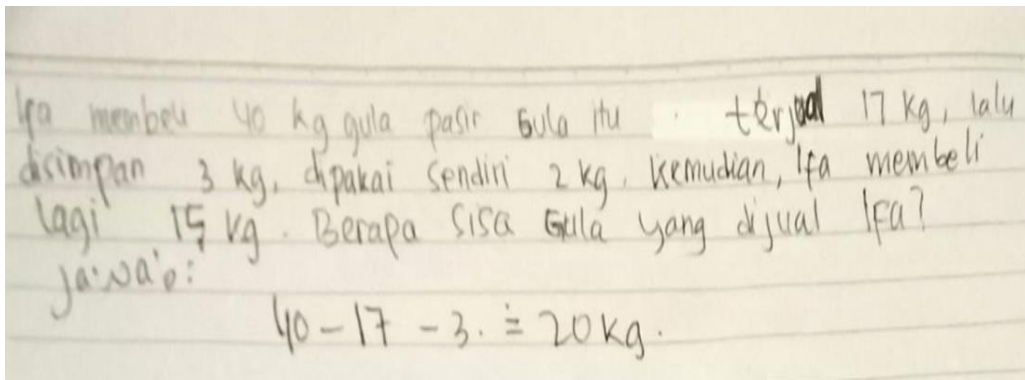 Ifa membeli 40 kg gula pasir Gula itu terjual 17 kg, lalu
disimpan 3 kg, dipakai sendiri 2 kg. Kemudian, Ifa membeli
lagi 15 kg. Berapa sisa Gula yang dijual Ifa?
jawab:
40 - 17 - 3. = 20 kg.